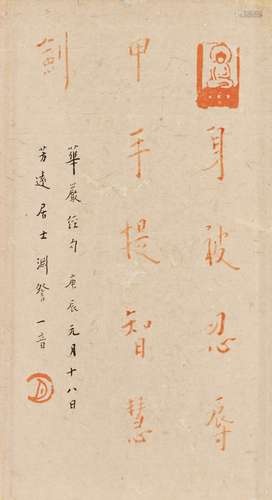 身被忍辱
甲手提智慧
劍
華嚴經句 庚辰元月十八日
芳遠居士淵詧 一音